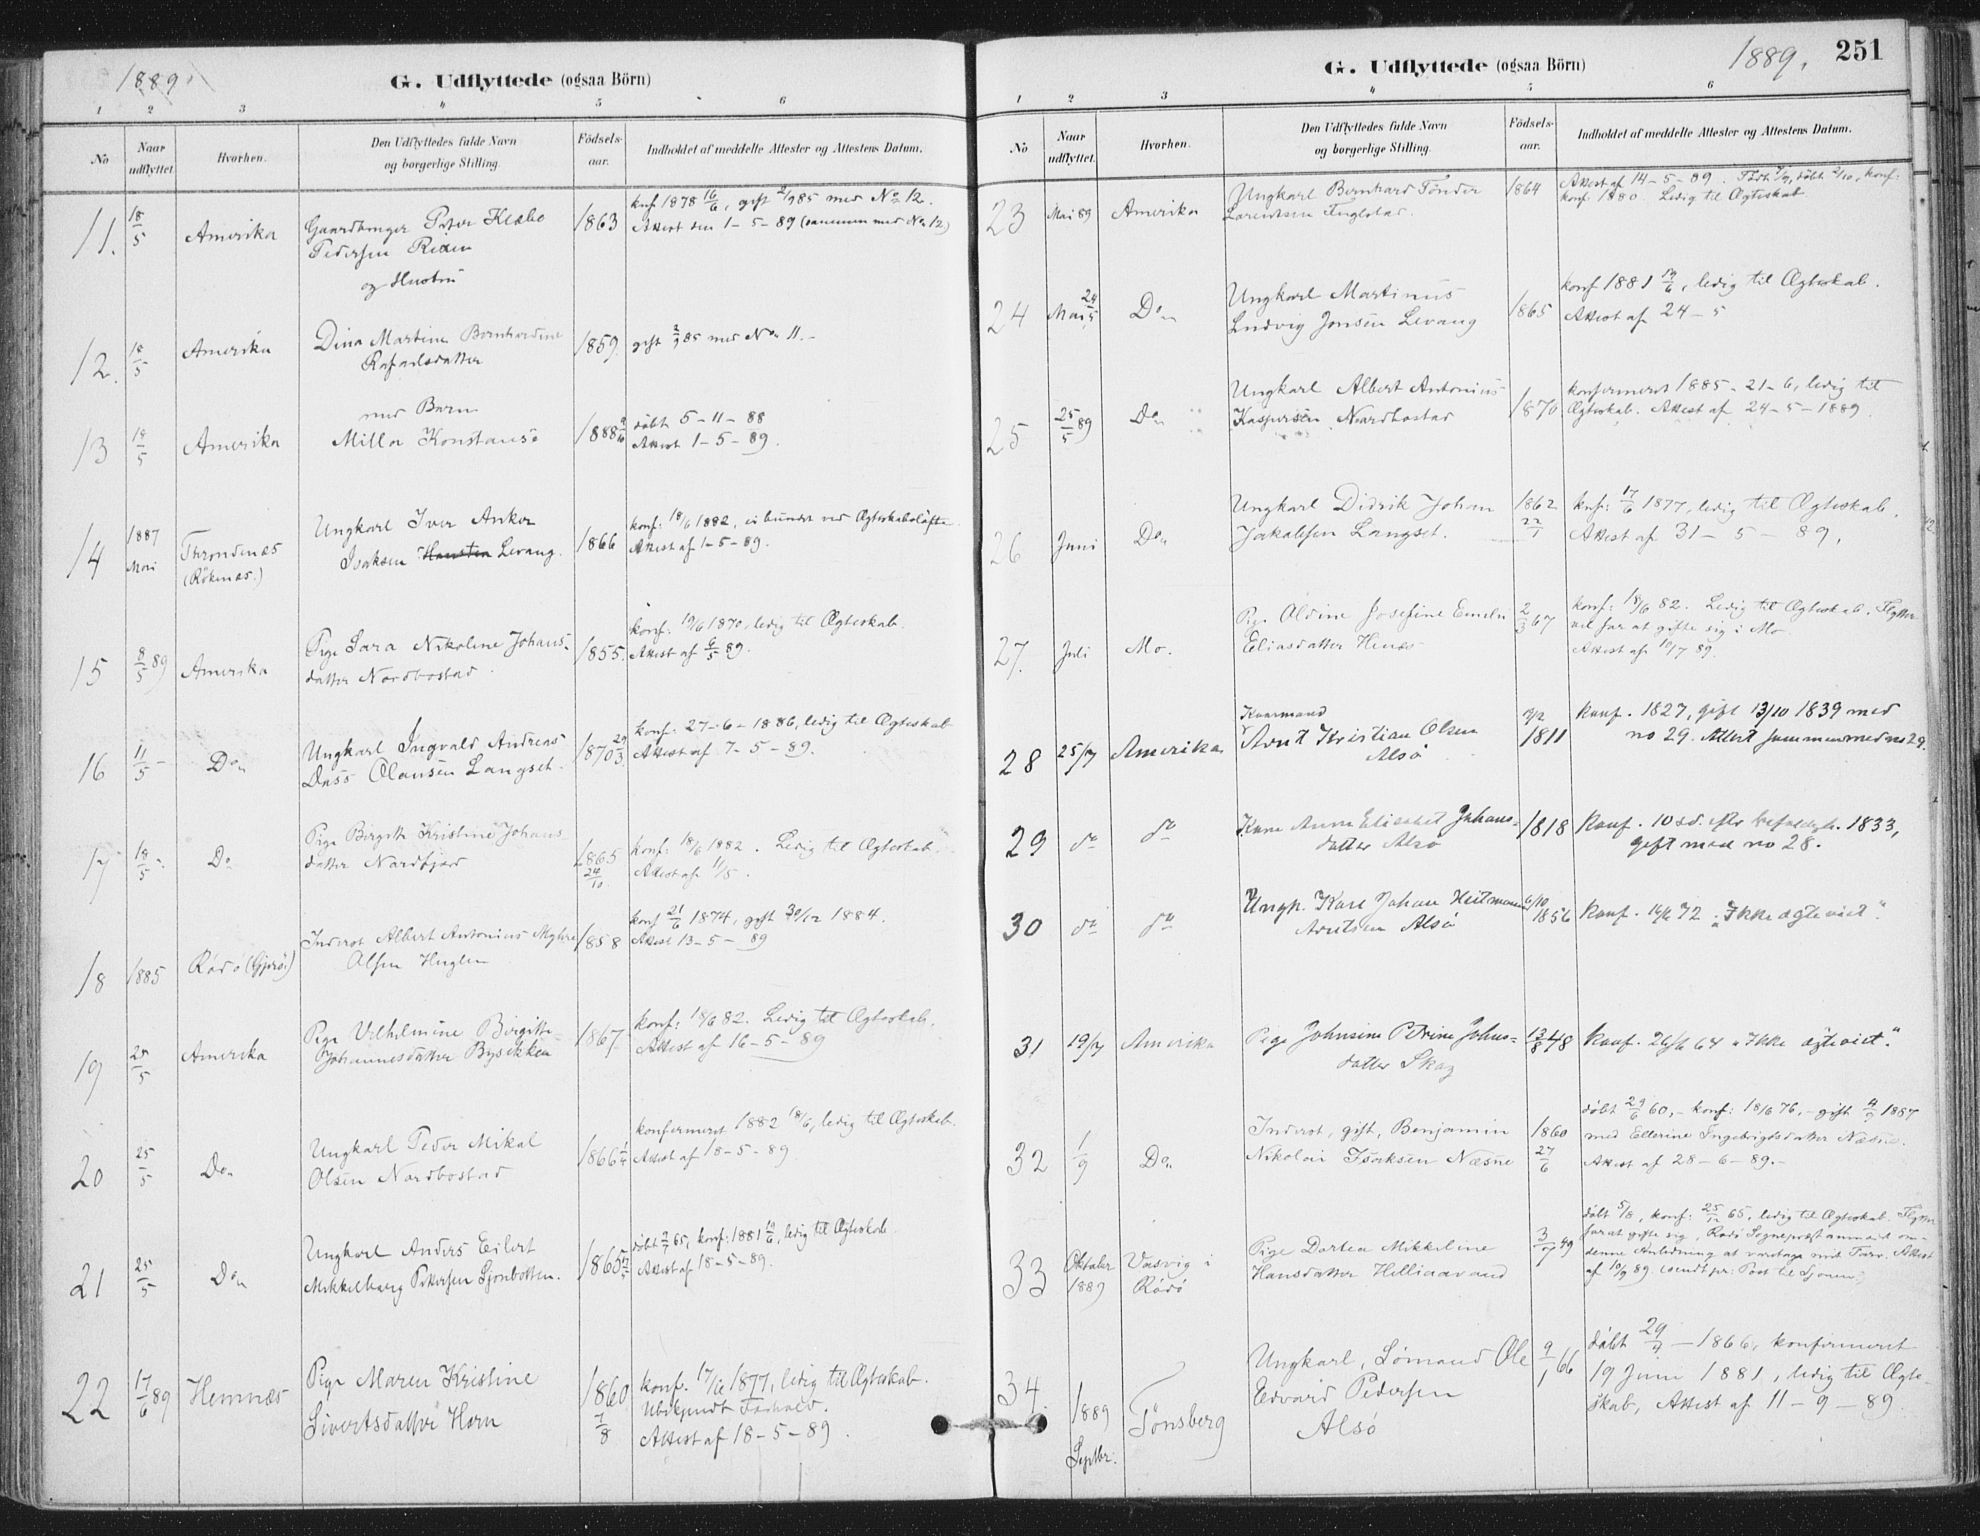 1889.
G. Udflyttede (ogsaa Börn)
1 2 3 4 5 6
No
Naar udflyttet
Hvorhen.
Den Udflyttedes fulde Navn
og borgerlige Stilling.
Födsels-
aar.
Indholdet af meddelte Attester og Attestens Datum.
11. 18/5 Amerika Gaardbruger Peter Klæbo 1863 konf 1878 16/6, gift 2/9 85 med No 12.
Pedersen
og Hustru
Attest den 1-5-89 (sammen med No 12)
12. 18/5 Amerika Dina Martine Bernhardine 1859. gift 2/9 85 med No 11.-
Rafaelsdatter
med Barn
13 18/5 Amerika Milla Konstanse 1888 döbt 5-11-88
Attest 1-5-89.
14 1887 Mai Throndenæs (Röknæs.) Ungkarl Iver Anker 1866 konf: 18/6 1882, ei bundet ved Ægteskabslöfte
Isaksen Hansten Levang. Attest af 1-5-89.
15 8/5 89 Amerika Pige Sara Nikoline Johans- 1855. konf: 19/6 1870, ledig til Ægteskab.
datter Nordbostad Attest af 6/5 89.
16 11/5 Do Ungkarl Ingvald Andreas 1870 29/3 konf. 27-6-1886, ledig til Ægteskab
Dass Olausen Langset. Attest af 7-5-89.
17 18/5 Do Pige Birgitte Kristine Johans 1865 24/10 konf: 18/6 1882. Ledig til Ægteskab.
datter Nordfjord Attest af 11/5.
18 1885 Rödö (Gjerö) Inderst Albert Antonius Myhre 1858 konf 21/6 1874, gift 30/12 1884.
Olsen Huglen Attest 13-5-89
19 25/5 Amerika Pige Vilhelmine Birgitte 1867 konf: 18/6 82. Ledig til Ægteskab.
Johannesdatter Attest af 16-5-89
20 25/5 Do Ungkarl Peder Mikal 1866 1/4 konfirmeret 1882 18/6, ledig til Ægteskab.
Olsen Nordbostad Attest af 18-5-89
21 25/5 Do Ungkarl Anders Eilert 1865 döbt 2/7 65, konf: 1881 19/6, ledig til Ægteskab
Mikkelborg Petersen Sjonbotten. Attest af 18-5-89.
22 17/6 89 Hemnæs Pige Maren Kristine 1860 7/8 konf. 17/6 1877, ledig til Ægteskab.
Sivertsdatter Horn Ubekjendt Forhold.
Attest af 18-5-89.
G. Udflyttede (ogsaa Börn)
1889. 251
1 2 3 4 5 6
No
Naar udflyttet.
Hvorhen.
Den Udflyttedes fulde Navn
og borgerlige Stilling.
Födsels-
aar.
Indholdet af meddelte Attester og Attestens Datum.
23 Mai 89 Amerika Ungkarl Bernhard Tönder 1864 Attest af 14-5-89. döbt konf:
Lorentsen Fuglstad. konf 1880. Ledig til Ægteskab
24 Mai 24/5 Do Ungkarl Martinus 1865 konf 1881 19/6, ledig til Ægteskab.
Ludvig Jonsen Levang Attest af 24-5
25 25/5 89 Do Ungkarl Albert Antonius 1870 konfirmeret 1885-21-6, ledig til
Kaspersen Nordbostad Ægteskab. Attest af 24-5-1889.
26 Juni Do Ungkarl Didrik Johan 1862 22/1 konf: 17/6 1877, ledig til Ægteskab.
Jakobsen Langset. Attest af 31-5-89.
27. Juli Mo. Pige Aldine Josefine Emelie 2/3 67 konf: 18/6 82. Ledig til Ægteskab. Flytter
Eliasdatter for at gifte sig i Mo.
Attest af 10/7 89.
28 25/7 Amerika Kaarmand 1811 konf. 1827, gift 13/10 1839 med
Arnt Kristian Olsen no 29. Attest sammen med no 29.
Alsö
29 do do Kone Anne Elisabet Johans- 1818 konf. 10 sd. efter 1833,
datter Alsö gift med no 28.
30 do do Ungk. Karl Johan Heitmann 6/10 1856 konf. 16/6 72 "Ikke ægteviet".
Arntsen Alsö
31 19/7 Amerika Pige Johnsine Petrine Johns- 13/8 48 konf. 26/6 64 "Ikke ægteviet."
datter Skog
32 1/9 Do Inderst, gift, Benjamin 1860 27/6 döbt 29/6 60,- konf: 18/6 76,- gift 4/9 1887
Nikolai Isaksen Næsne med Ellerine Ingebrigtsdatter Næsne.
Attest af 28-6-89.-
33 Oktober 1889 Vasvig i Rödö Pige Dortea Mikkeline 3/7 49 döbt 5/8, konf: 25/12 65, ledig til Ægteskab. Flytter
Hansdatter for at gifte sig, Rödö Sognepræst anmodet om
denne Anledning at varetage mit Tarv. Attest
af 10/9 89. (sendt pr: Post til Sjonen.)
34. 1889 Septbr. Tönsberg Ungkarl, Sömand Ole 9/1 66 döbt 29/7-1866, konfirmeret
Edvard Pedersen 19 Juni 1881, ledig til Ægte-
Alsö skab, Attest af 11-9-89.